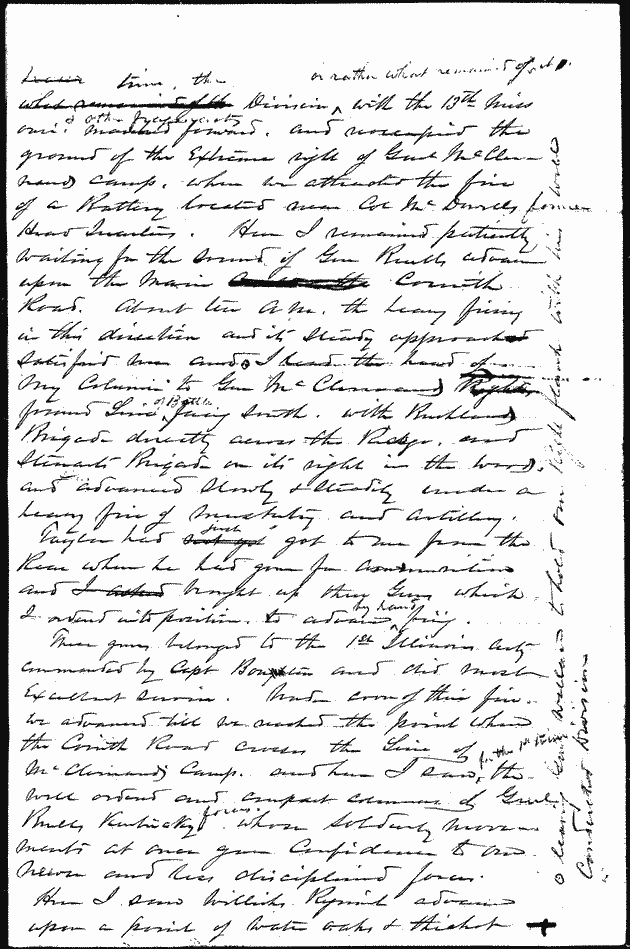 time, the or rather what remained of it
what remained of the Division, with the 13th Miss
ouri & other fragments, marched forward, and reoccupied the
ground of the Extreme right of Genl McCler
nands camp, when we attracted the fire
of a Battery located near Col McDowells former
Head Quarters. Here I remained patiently
waiting for the sound of Gen Buells advance
upon the Main Corinth
Road. About ten A.M. the heavy firing
in this direction and its steady approach
satisfied me and I head the head of
My Column to Gen McClernands Right
formed Line of Battle facing South, with Buckland's
Brigade directly across the Ridge, and
Stewarts Brigade on its right in the woods,
and advanced slowly & steadily under a
heavy fire of musketry and artillery.
Taylor had just got to me from the
Rear where he had gone for ammunition
and brought up three Guns which
I ordered into position to advance by hand firing.
These guns belonged to the 1st Illinois Arty
commanded by Capt and did most
Excellent service. Under cover of this fire
we advanced till we reached the point where
the Corinth Road crosses the Line of
McClernands Camp, and here I saw for the 1st time the
well ordered and compact columns of Genl
Buells Kentucky forces whose soldierly move
ments at once gave Confidence to our
newer and less disciplined forces.
Here I saw Willichs Regiment advance
upon a point of water oaks & thicket
leaving Genl Wallace to hold our right flank with his well
conducted Division